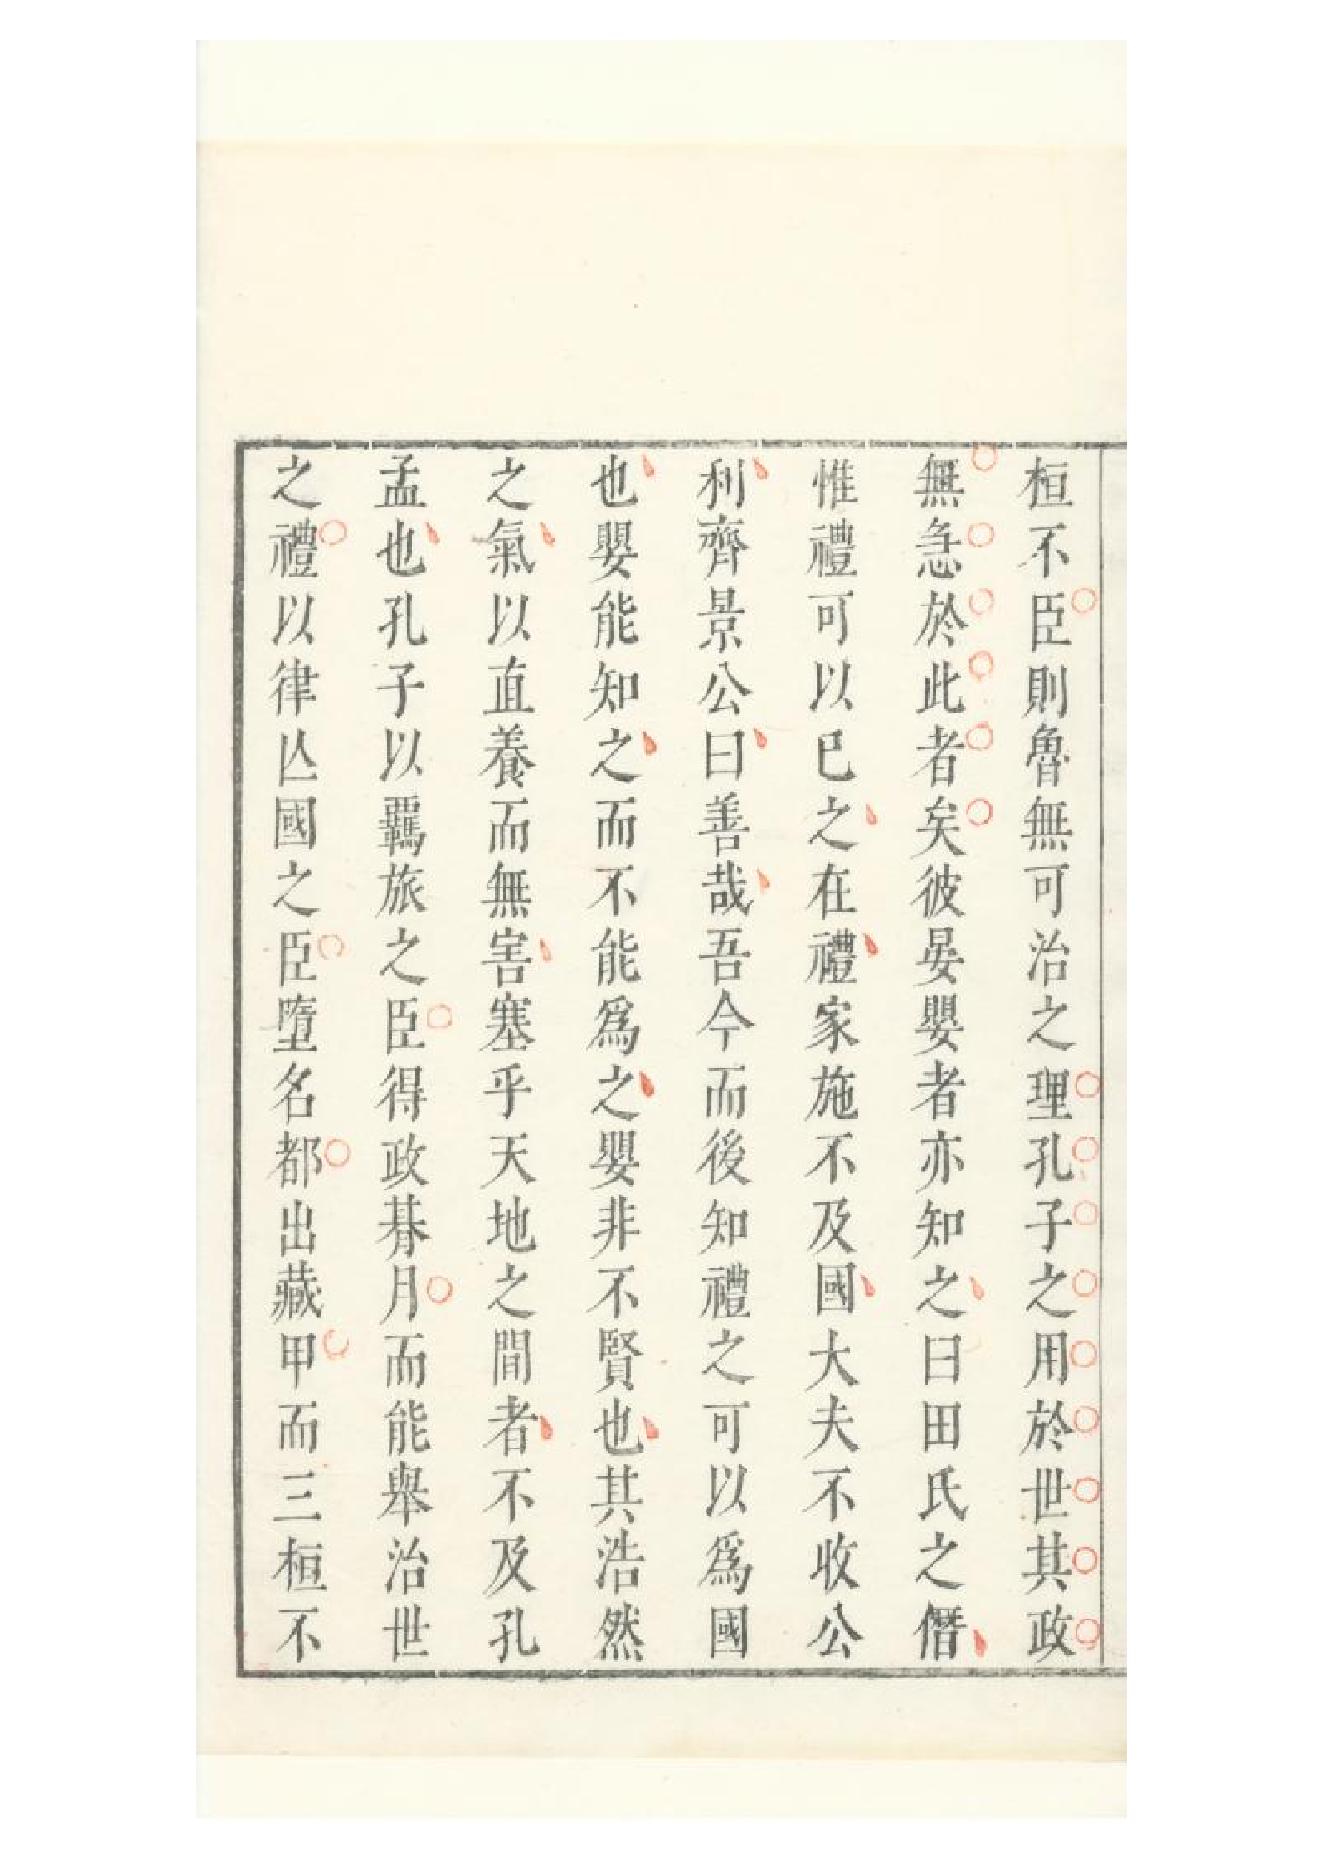 桓不臣則魯無可治之理孔子之用於世其政
無急於此者矣彼晏嬰者亦知之曰田氏之僭
惟禮可以已之在禮家施不及國大夫不收公
利齊景公曰善哉吾今而後知禮之可以爲國
也嬰能知之而不能爲之嬰非不賢也其浩然
之氣以直養而無害塞乎天地之間者不及孔
孟也孔子以羈旅之臣得政朞月而能舉治世
之禮以律亾國之臣墮名都出藏甲而三桓不